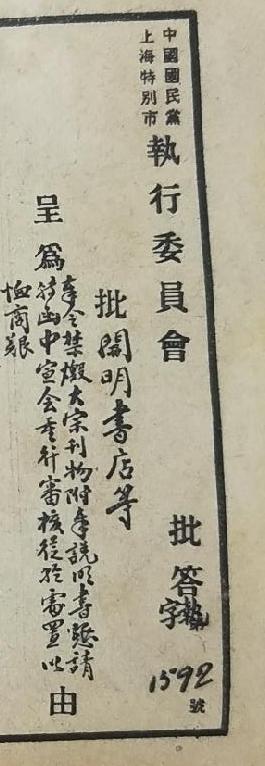 中國國民黨
上海特別市
執行委員會
批答執字
1592號
批開明書店等
呈為
奉令禁燬大宗刊物附奉說明書懇請
轉函中宣会重行審核從處置以
恤商艱
由